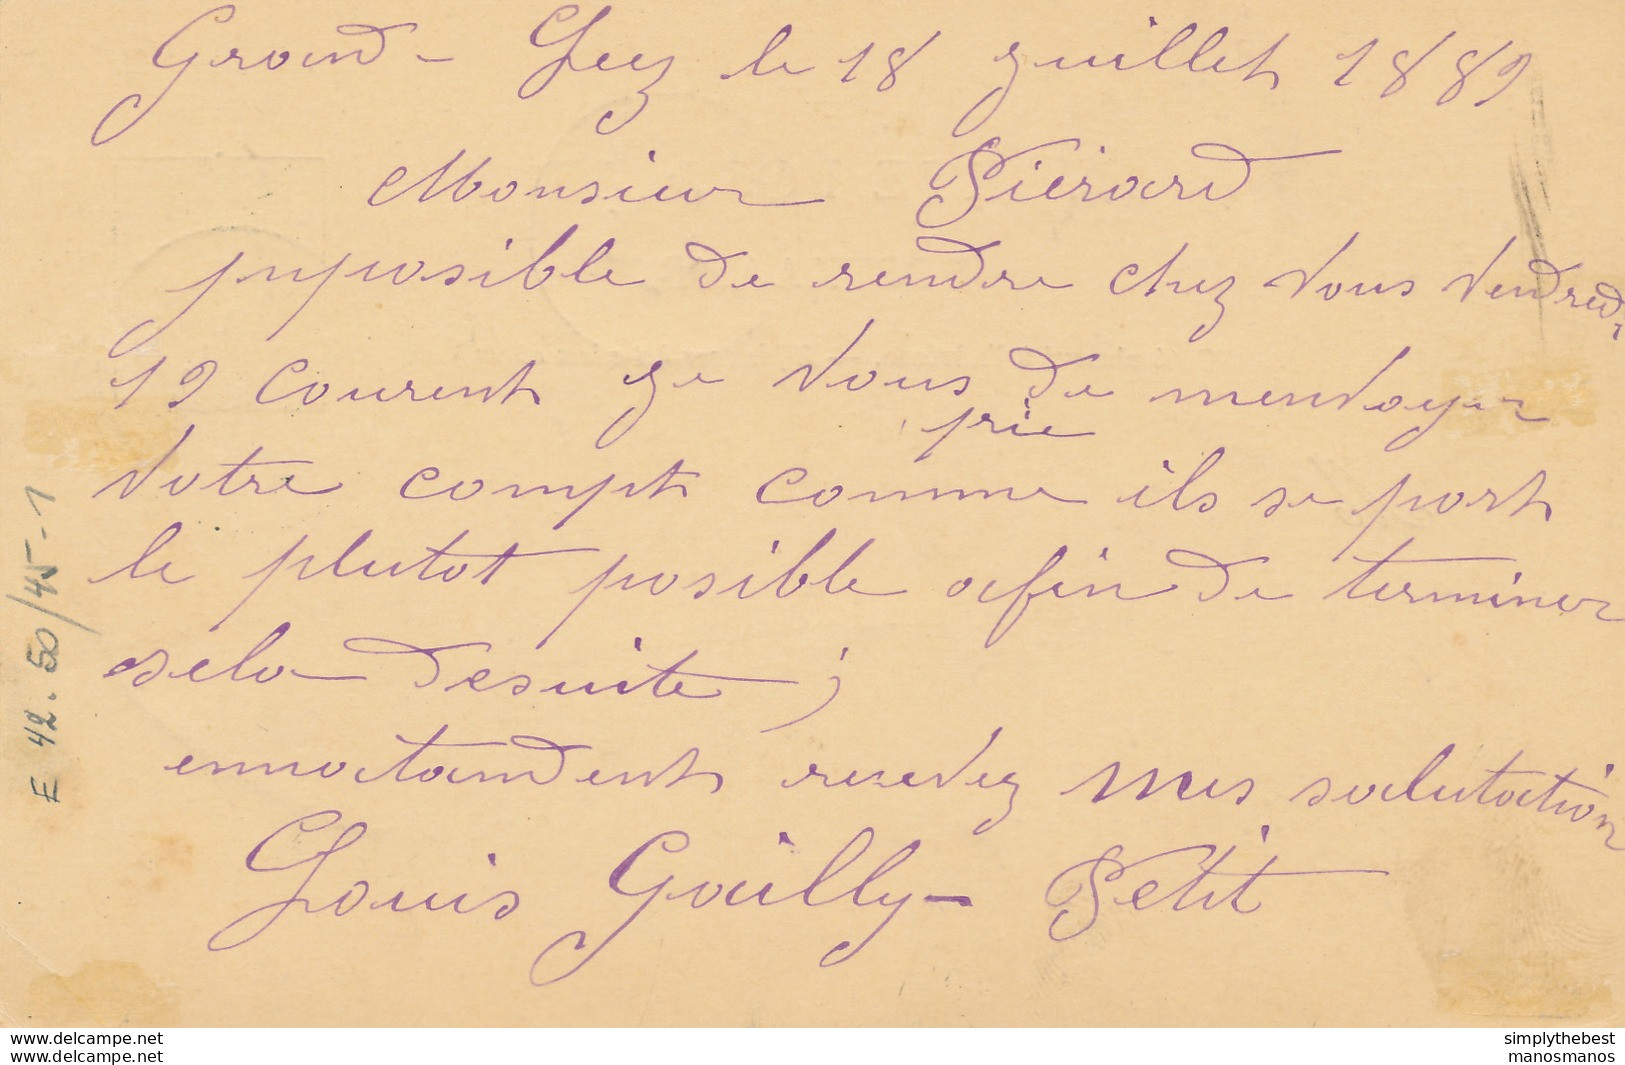 Grand - Leez le 18 juillet 1889
Monsieur Piérard
imposible de rendre chez vous vendredi
19 courent je vous de menvoyer
prie
votre compt comme ils se port
le plutot posible afin de terminer
sela desuite ;
ennatandent resevez mes salutation
Louis Gailly - Petit
E 42. 50/45-1
delcampe.net
delcampe.net
simplythebest
manosmanos